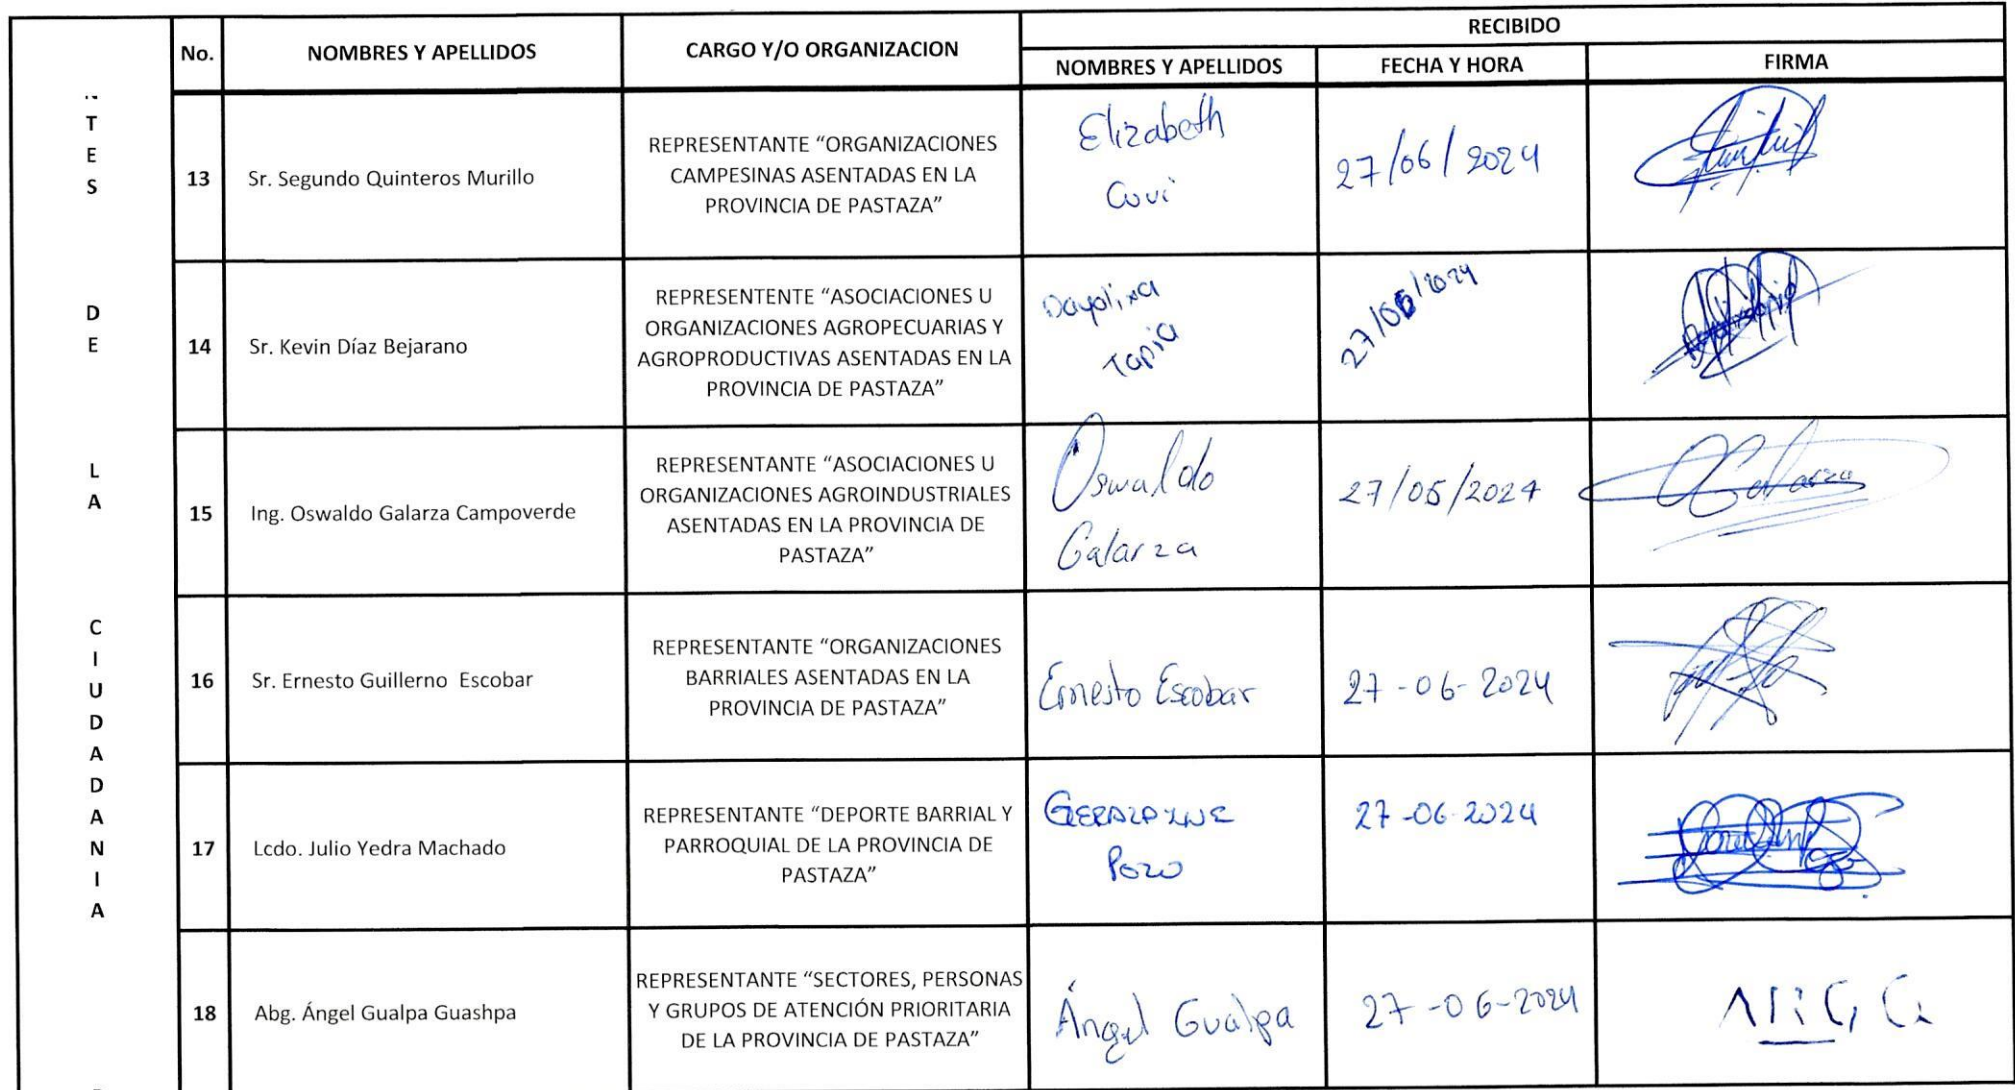 RECIBIDO
No.
NOMBRES Y APELLIDOS
CARGO Y/O ORGANIZACION
NOMBRES Y APELLIDOS
FECHA Y HORA
FIRMA
TES DE LA CIUDADANIA
13
Sr. Segundo Quinteros Murillo
REPRESENTANTE “ORGANIZACIONES
CAMPESINAS ASENTADAS EN LA
PROVINCIA DE PASTAZA”
Elizabeth
27/06/2024
14
Sr. Kevin Díaz Bejarano
REPRESENTENTE “ASOCIACIONES U
ORGANIZACIONES AGROPECUARIAS Y
AGROPRODUCTIVAS ASENTADAS EN LA
PROVINCIA DE PASTAZA”
Dayolixa
Tapia
27/06/2024
15
Ing. Oswaldo Galarza Campoverde
REPRESENTANTE “ASOCIACIONES U
ORGANIZACIONES AGROINDUSTRIALES
ASENTADAS EN LA PROVINCIA DE
PASTAZA”
Oswaldo
Galarza
27/06/2024
Galarza
16
Sr. Ernesto Guillerno Escobar
REPRESENTANTE “ORGANIZACIONES
BARRIALES ASENTADAS EN LA
PROVINCIA DE PASTAZA”
Ernesto Escobar
27-06-2024
17
Lcdo. Julio Yedra Machado
REPRESENTANTE “DEPORTE BARRIAL Y
PARROQUIAL DE LA PROVINCIA DE
PASTAZA”
Pozo
27-06-2024
18
Abg. Ángel Gualpa Guashpa
REPRESENTANTE “SECTORES, PERSONAS
Y GRUPOS DE ATENCIÓN PRIORITARIA
DE LA PROVINCIA DE PASTAZA”
Ángel Gualpa
27-06-2024